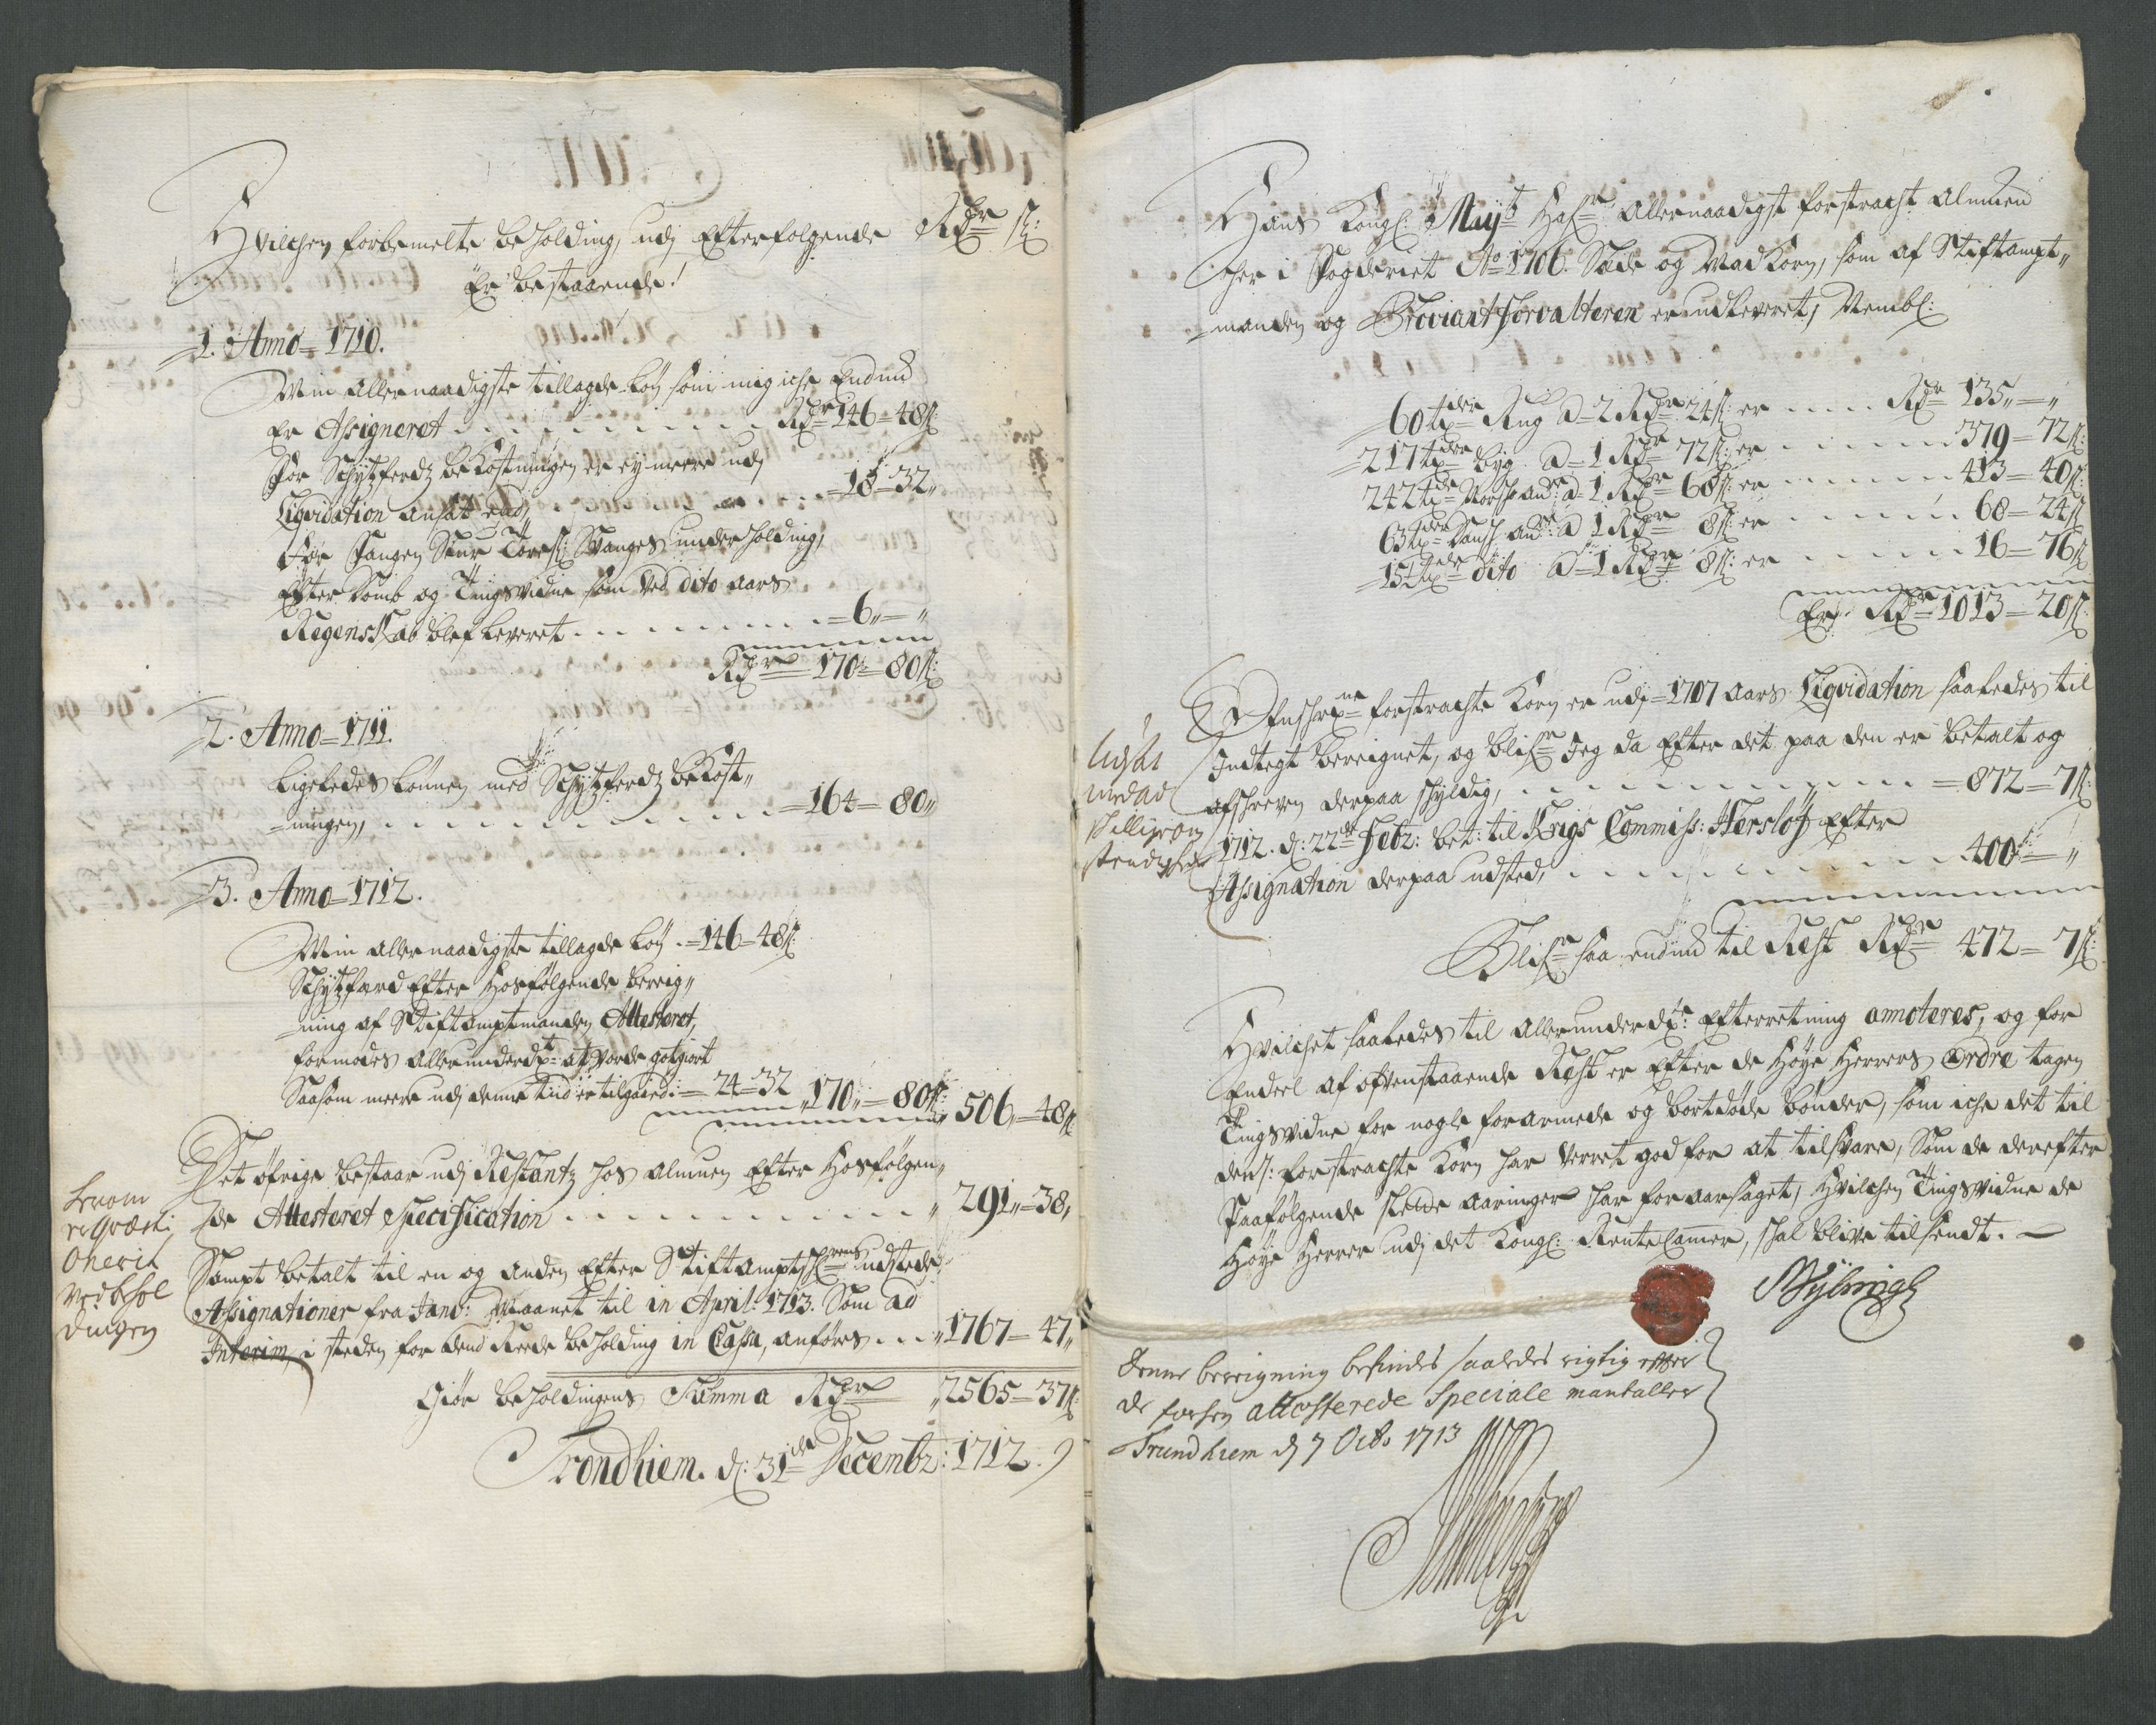 Hvilchen forbemelte beholding, udj Efterfølgende Rdr ß:
Er bestaaende!
1. Anno 1710.
Min allernaadigste tillagde løn som mig iche Endnu
Er Assigneret . . . . . . . . Rdr 146 = 48ß
For Schytzferdtz bekostningen er ey meere udj
Liqvidation ansat end . . . = 18 = 32„
For Fangen Siur Torris: Svanges underholding,
Efter Domb og Tingsvidne som ved dito aars
Regenskab blef leveret . . . . . . . = 6„ = „
Rdr 170 = 80ß:
2. Anno 1711.
Ligeledes lønnen med Schytzferdtz bekost„
ningen, . . . . . . . . . . . = 164 = 80„
3. Anno 1712.
Min allernaadigste tillagde løn . = 146 = 48ß:
Schytzferd Efter Hosfølgende bereig„
ning af Stiftamptmanden Attesteret,
formodes allerunderdt: at vorde gotgiort
Saasom meere udj denne tid er tilgaaed: = 24 = 32 „170„ = 80ß: „506„ = 48ß
Det øfrige bestaar udj Restantz hos almuen Efter Hosfølgen„
de Attesteret Specification . . . . . . . . . . „ 291„ = 38„
Sampt betalt til en og anden Efter Stiftamptschrifrens udstede
Assignationer fra Janv: Maanet til in April: 1713. Som ad
Interim, i steden for dend Reede beholding in Cassa, anføres . . . „1767 = 47„
Giør beholdingens Summa Rdr „2565 = 37ß:
Trondhiem. d: 31de Decembr: 1712.
hvorom
er qvæsti
onerit
ved behol
dingen
Hans Kongl: Mayts Hafr allernaadigst forstracht almuen
her i Fogderiet Ao 1706. Sæde og Madkorn, som af Stiftampt„
manden og Proviantforvalteren er udleveret, Nembl:
60 tdr Rug a 2 Rdr 24ß: er . . . . Rdr 135„ = „
217 tdr byg a 1 Rdr 72ß: er . . . . . . 379 = 72ß:
242 tdr Norsk aur: a 1 Rdr 68ß: er . . . . . 413 = 40ß:
63 tdr Dansk aur: a 1 Rdr 8ß: er . . . . . 68 = 24ß
15½ tdr dito a 1 Rdr 8ß: er . . . . . . 16 = 76ß
Er Rdr 1013 = 20ß:
Ofuschrne forstrachte korn er udj 1707 aars Liqvidation saaledes til
Indtegt bereignet, og blifr Jeg da Efter det paa den er betalt og
afschreven derpaa schyldig, . . . . . . . . . = 872 = 7ß:
1712. d: 22de Febr: bet: til Krigs Commiss: Hersløf Efter
Assignation derpaa udsted, . . . . . . . . . 400 = „
Blifr saa endnu til Rest Rdr 472 = 7ß:
Hvilchet saaledes til allerunderdte: Efterretning annoteres, og for
Endeel af ofvenstaaende Rest er Efter de Høye Herrers Ordre tagen
Tingsvidne for nogle forarmede og bortdøde bønder, som iche det til
dens: forstrachte korn har verret god for at tilsvare, Som de derefter
Paafølgende slette aaringer har foraarsaget, Hvilchen Tingsvidne de
Høye Herrer udj det Kongl: RenteCamer, schal blive tilsendt.
Denne bereigning befindes saaledes rigtig efter
de forhen attesterede Speciale mantaller
Trundhiem d 7 Octb 1713